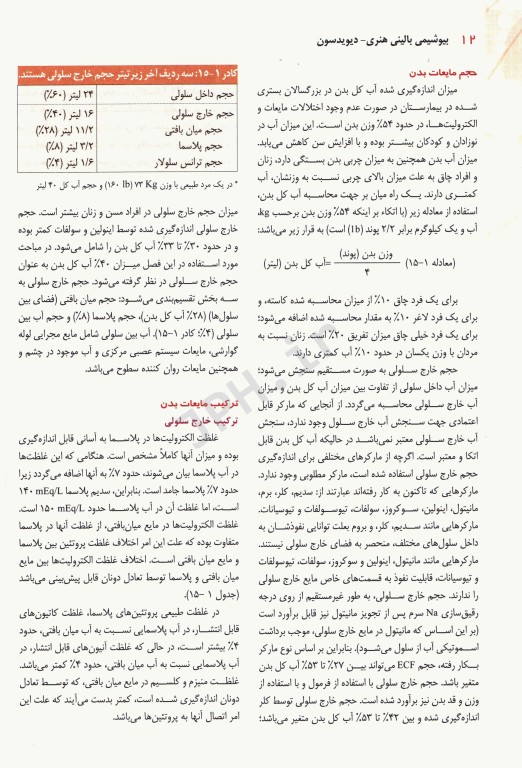 ۱۲ بیوشیمی بالینی هنری- دیویدسون
حجم مایعات بدن
میزان اندازه‌گیری شده آب کل بدن در بزرگسالان بستری
شـده در بیمارسـتان در صورت عدم وجود اختلالات مایعات و
الکترولیت‌هـا، در حدود ۵۴٪ وزن بدن اسـت. این میزان آب در
نوزادان و کودکان بیشـتر بوده و با افزایش سن کاهش می‌یابد.
میزان آب بدن همچنین به میزان چربی بدن بسـتگی دارد، زنان
و افراد چاق به علت میزان بالای چربی نسـبت به وزنشان، آب
کمتـری دارند. یـک راه میان بر جهت محاسـبه آب کل بدن،
استفاده از معادله زیر (با اتکاء بر اینکه ۵۴٪ وزن بدن برحسب kg،
آب و یک کیلوگرم برابر ۲/۲ پوند (lb) است) به قرار زیر می‌باشد:
(معادله ۱-۱۵) وزن بدن (پوند) / ۴ =آب کل بدن (لیتر)
برای یک فرد چاق ۱۰٪ از میزان محاسـبه شده کاسته، و
برای یک فرد لاغر ۱۰٪ به مقدار محاسـبه شده اضافه می‌شود؛
برای یک فرد خیلی چاق میزان تفریق ۲۰٪ است. زنان نسبت به
مردان با وزن یکسان در حدود ۱۰٪ آب کمتری دارند.
حجم خارج سـلولی به صورت مسـتقیم سنجش می‌شود؛
میزان آب داخل سلولی از تفاوت بین میزان آب کل بدن و میزان
آب خارج سـلولی محاسـبه می‌گردد. از آنجایی که مارکر قابل
اعتمادی جهت سـنجش آب خارج سـلول وجود ندارد، سنجش
آب خارج سـلولی معتبر نمی‌باشـد در حالیکه آب کل بدن قابل
اتکا و معتبر است. اگرچه از مارکرهای مختلفی برای اندازه‌گیری
حجم خارج سلولی استفاده شده است، مارکر مطلوبی وجود ندارد.
مارکرهایی که تاکنون به کار رفته‌اند عبارتند از: سدیم، کلر، برم،
مانیتول، اینولین، سـوکروز، سولفات، تیوسـولفات و تیوسیانات.
مارکرهایی مانند سـدیم، کلر، و بروم بعلت توانایی نفوذشـان به
داخل سلول‌های مختلف، منحصر به فضای خارج سلولی نیستند.
مارکرهایی مانند مانیتول، اینولین و سوکروز، سولفات، تیوسولفات
و تیوسیانات، قابلیت نفوذ به قسمت‌های خاص مایع خارج سلولی
را ندارند. حجم خارج سـلولی، به طور غیرمستقیم از روی درجه
رقیق‌سازی Na سرم پس از تجویز مانیتول نیز قابل برآورد است
(بر این اسـاس که مانیتول در مایع خارج سلولی، موجب برداشت
اسـموتیکی آب از سلول می‌شـود). بنابراین بر اساس نوع مارکر
بـکار رفته، حجم ECF می‌تواند بیـن ۲۷٪ تا ۵۳٪ آب کل بدن
متغیر باشد. حجم خارج سلولی با استفاده از فرمول و با استفاده از
وزن و قد بدن نیز برآورد شده است. حجم خارج سلولی توسط کلر
اندازه‌گیری شده و بین ۴۲٪ تا ۵۳٪ آب کل بدن متغیر می‌باشد؛
کادر ۱-۱۵: سه ردیف آخر زیر تیتر حجم خارج سلولی هستند.
حجم داخل سلولی ۲۴ لیتر (۶۰٪)
حجم خارج سلولی ۱۶ لیتر (۴۰٪)
حجم میان بافتی ۱۱/۲ لیتر (۲۸٪)
حجم پلاسما ۳/۲ لیتر (۸٪)
حجم ترانس سلولار ۱/۶ لیتر (۴٪)
* در یک مرد طبیعی با وزن ۷۳ Kg (۱۶۰ lb) و حجم آب کل ۴۰ لیتر
میزان حجم خارج سلولی در افراد مسن و زنان بیشتر است. حجم
خارج سلولی اندازه‌گیری شده توسط اینولین و سولفات کمتر بوده
و در حدود ۳۰٪ تا ۳۳٪ آب کل بدن را شامل می‌شود. در مباحث
مورد اسـتفاده در این فصل میـزان ۴۰٪ آب کل بدن به عنوان
حجم خارج سـلولی در نظر گرفته می‌شود. حجم خارج سلولی به
سـه بخش تقسیم‌بندی می‌شـود: حجم میان بافتی (فضای بین
سلول‌ها) (۲۸٪ آب کل بدن)، حجم پلاسما (۸٪) و حجم آب بین
سلولی (۴٪؛ کادر ۱-۱۵). آب بین سلولی شامل مایع مجرایی لوله
گوارشی، مایعات سیستم عصبی مرکزی و آب موجود در چشم و
همچنین مایعات روان کننده سطوح می‌باشد.
ترکیب مایعات بدن
ترکیب خارج سلولی
غلظت الکترولیت‌ها در پلاسـما به آسانی قابل اندازه‌گیری
بوده و میزان آنها کاملاً مشخص است. هنگامی که این غلظت‌ها
در آب پلاسما بیان می‌شوند، حدود ۷٪ به آنها اضافه می‌گردد زیرا
حدود ۷٪ پلاسما جامد است. بنابراین، سدیم پلاسما ۱۴۰ mEq/L
اسـت، اما غلظت آن در آب پلاسـما حدود ۱۵۰ mEq/L است.
غلظت الکترولیت‌ها در مایع میان‌بافتی، از غلظت آنها در پلاسما
متفاوت بوده که علت این امر اختلاف غلظت پروتئین بین پلاسما
و مایع میان بافتی اسـت. اختلاف غلظت الکترولیت‌ها بین مایع
میان بافتی و پلاسما توسط تعادل دونان قابل پیش‌بینی می‌باشد
(جدول ۱ -۱۵).
در غلظت طبیعی پروتئین‌های پلاسما، غلظت کاتیون‌های
قابل انتشـار، در آب پلاسمایی نسـبت به آب میان بافتی، حدود
۴٪ بیشتر اسـت، در حالی که غلظت آنیون‌های قابل انتشار، در
آب پلاسمایی نسبت به آب میان بافتی، حدود ۴٪ کمتر می‌باشد.
غلظـت منیزم و کلسـیم در مایع میان بافتی، که توسـط تعادل
دونان اندازه‌گیری شـده است، کمتر بدست می‌آیند که علت این
امر اتصال آنها به پروتئین‌ها می‌باشد.
JPH.ir